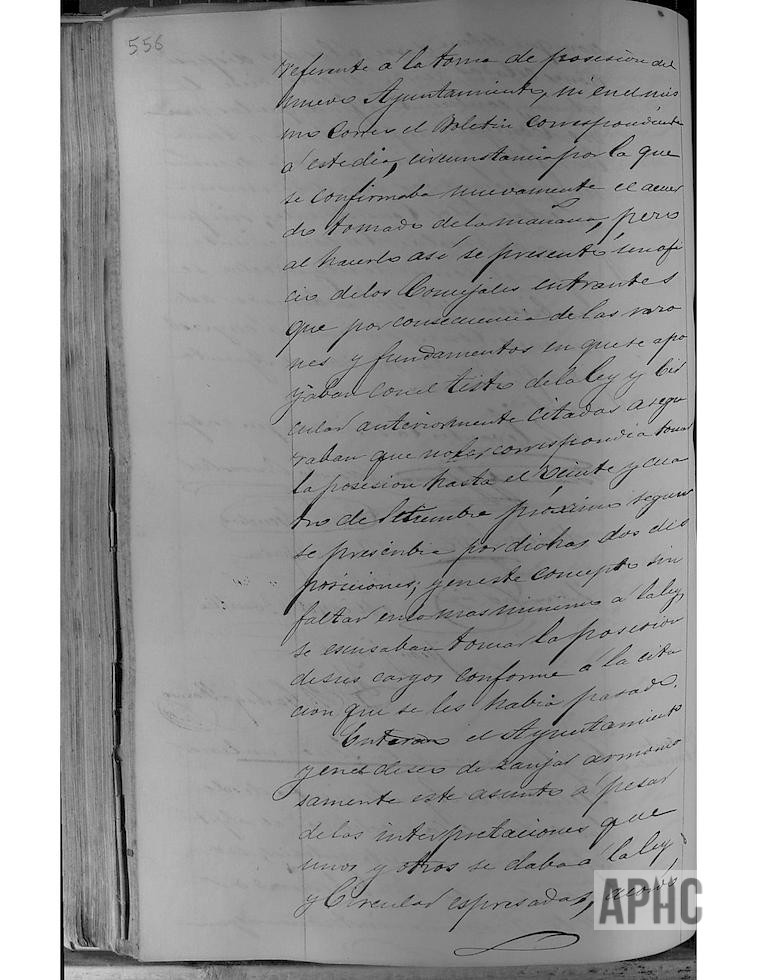 556
referente á la toma de posesion del
nuevo Ayuntamiento, ni en el mis
mo Correo el Boletin correspondiente
á este dia, circunstancia por la que
se confirmaba nuevamente el acuer
do tomado de la mañana, pero
al hacerlo así se presentó un ofi
cio de los Concejales entrantes
que por consecuencia de las razo
nes y fundamentos en que se apo
yaban con el testo de la ley y Cir
cular anteriormente citadas asegu
raban que no les correspondia tomar
la posesion hasta el veinte y cua
tro de Setiembre próximo segun
se prescribia por dichas dos dis
posiciones; y en este concepto sin
faltar en lo mas minimo á la ley,
se escusaban tomar la posesion
de sus cargos conforme á la cita
cion que se les habia pasado.
Enterado el Ayuntamiento
y en el deseo de zanjar armonio
samente este asunto a pesar
de las interpretaciones que
unos y otros se daba á la ley
y Circular espresadas, acordó
APHC